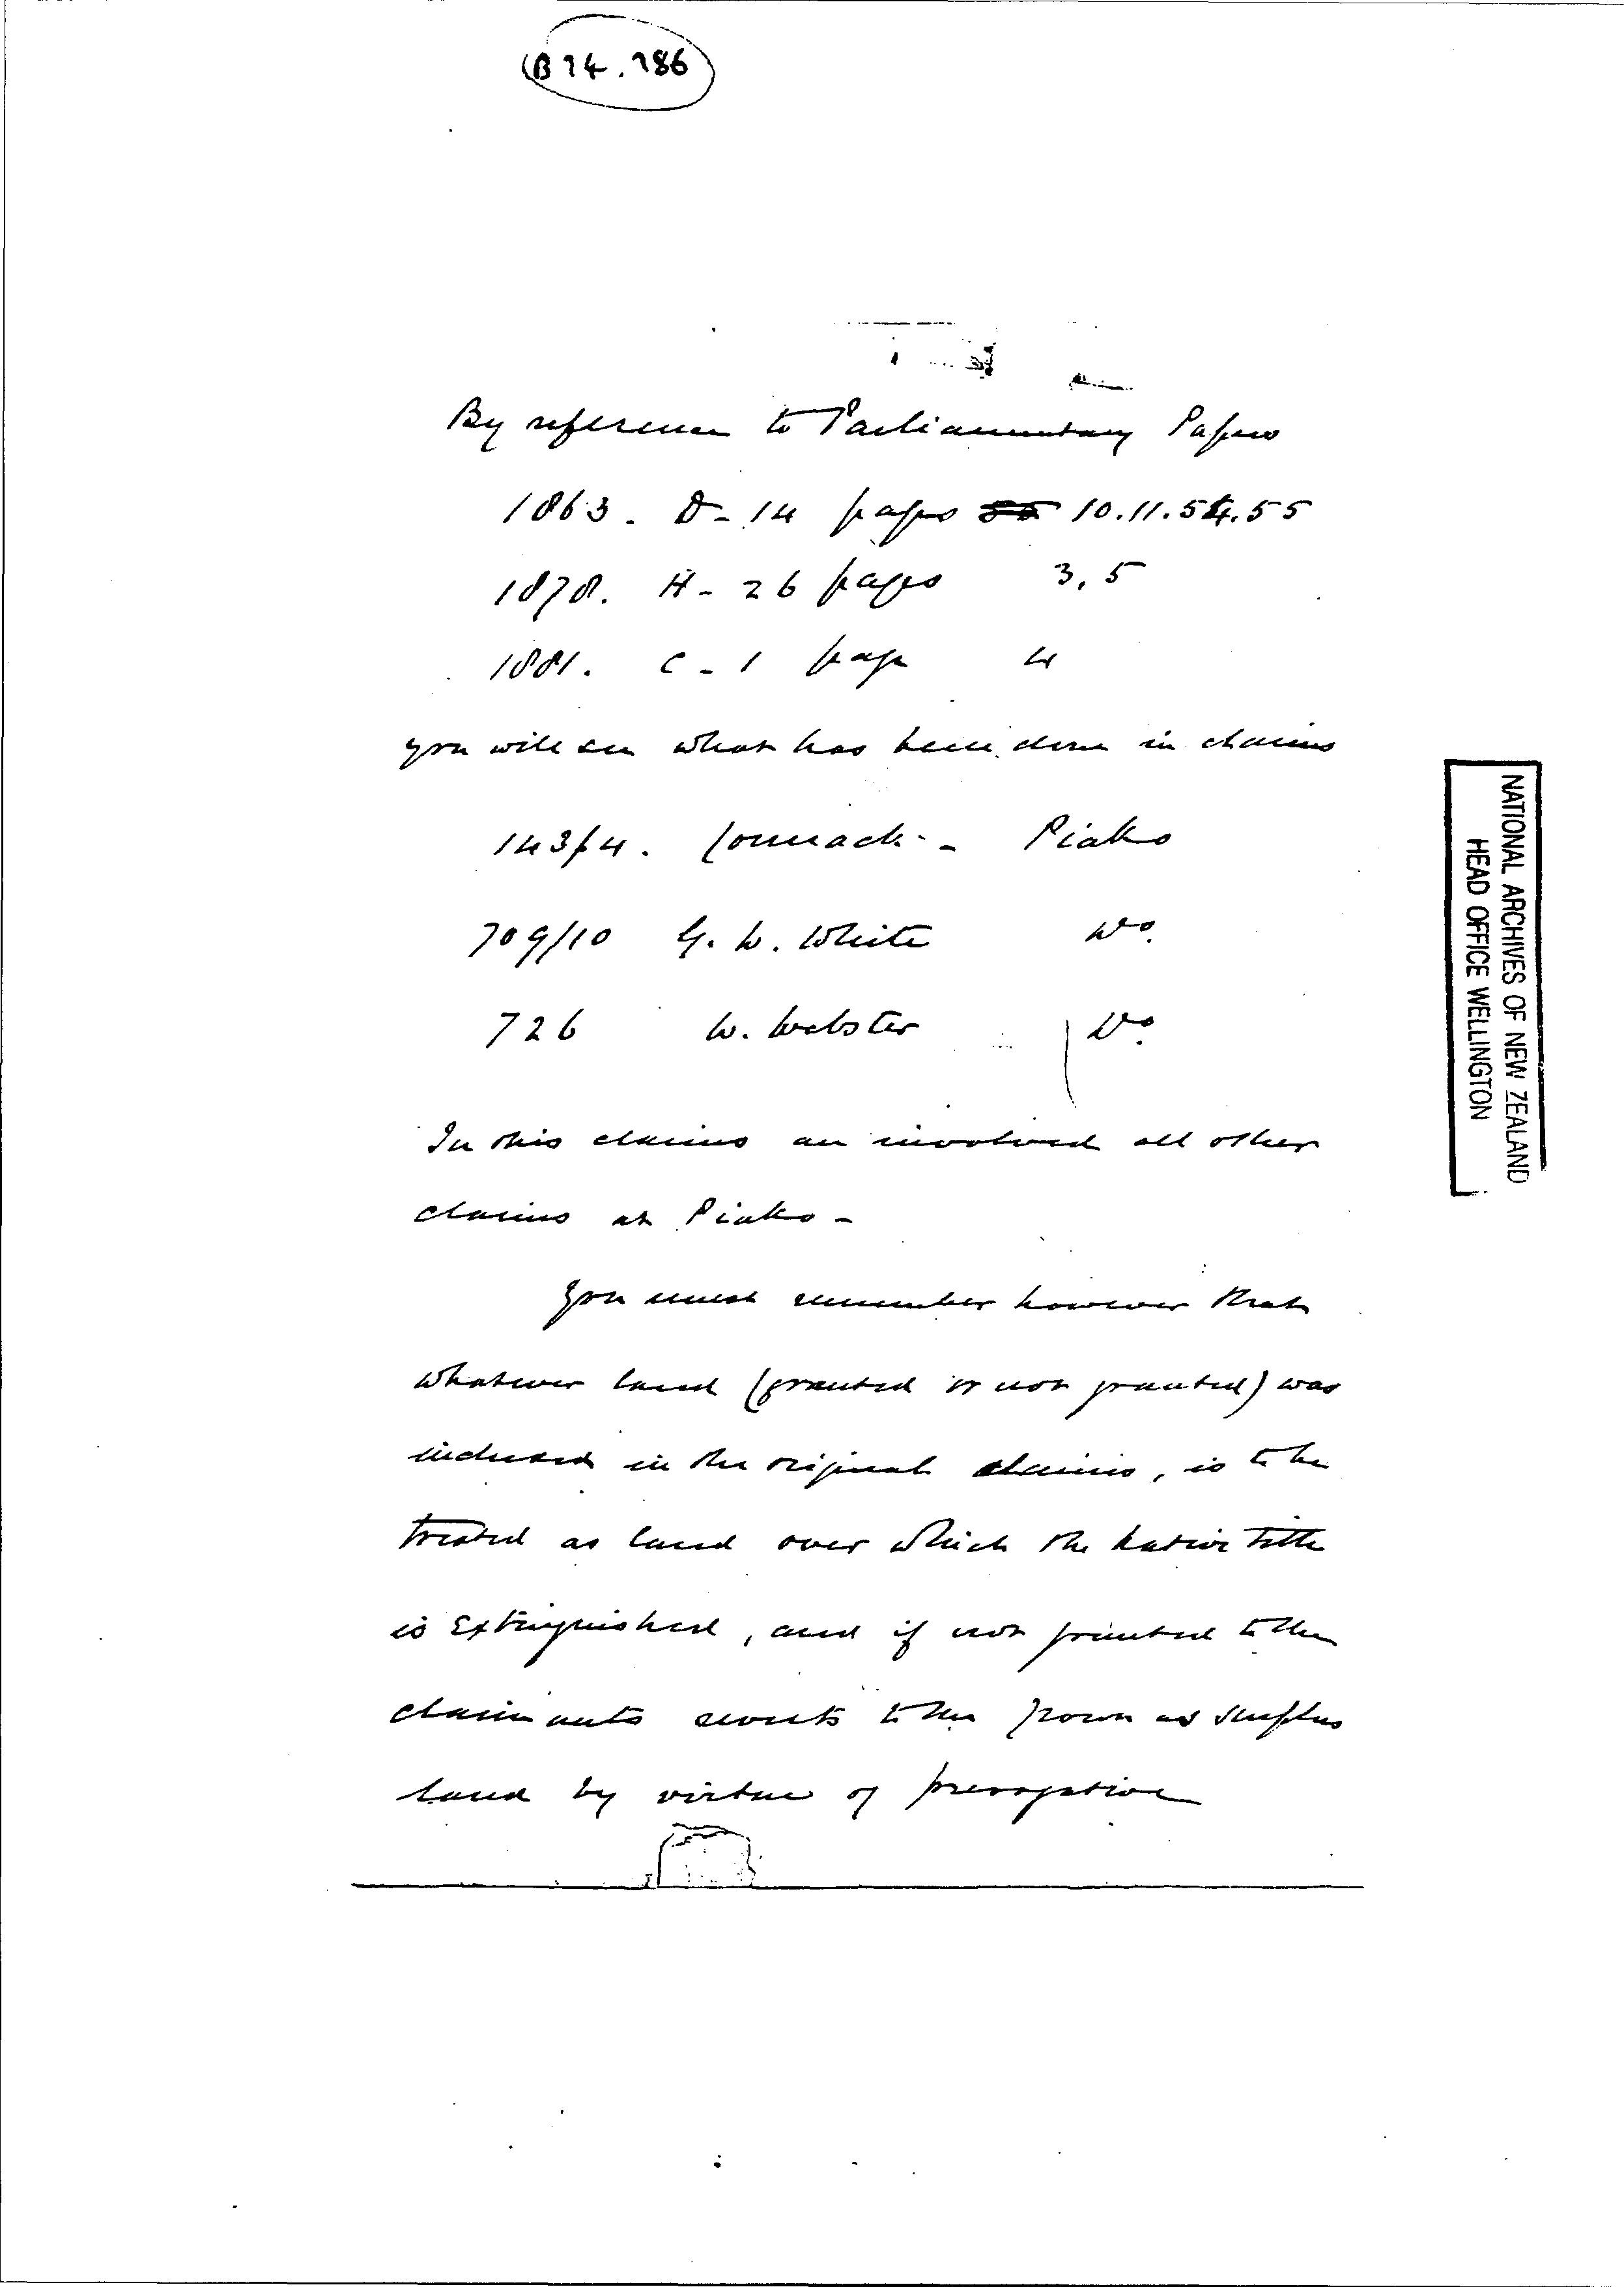 (B 14. 186
By reference to Parliamentary Papers
1863. D-14 pages 10.11.54.55
1878. H-26 pages 3,5
1881. C-1 page 4
you will see what has been done in claims
143/4. Cormack - Piako
709/10 G. W. White Do.
726 W. Webster Do.
In this claims are involved all other
claims at Piako -
You must remember however that
whatever land (granted or not granted) was
included in the original claims, is to be
treated as land over which the Native Title
is Extinguished, and if not granted to the
claimants reverts to the Crown as Surplus
land by virtue of prerogative
NATIONAL ARCHIVES OF NEW ZEALAND
HEAD OFFICE WELLINGTON